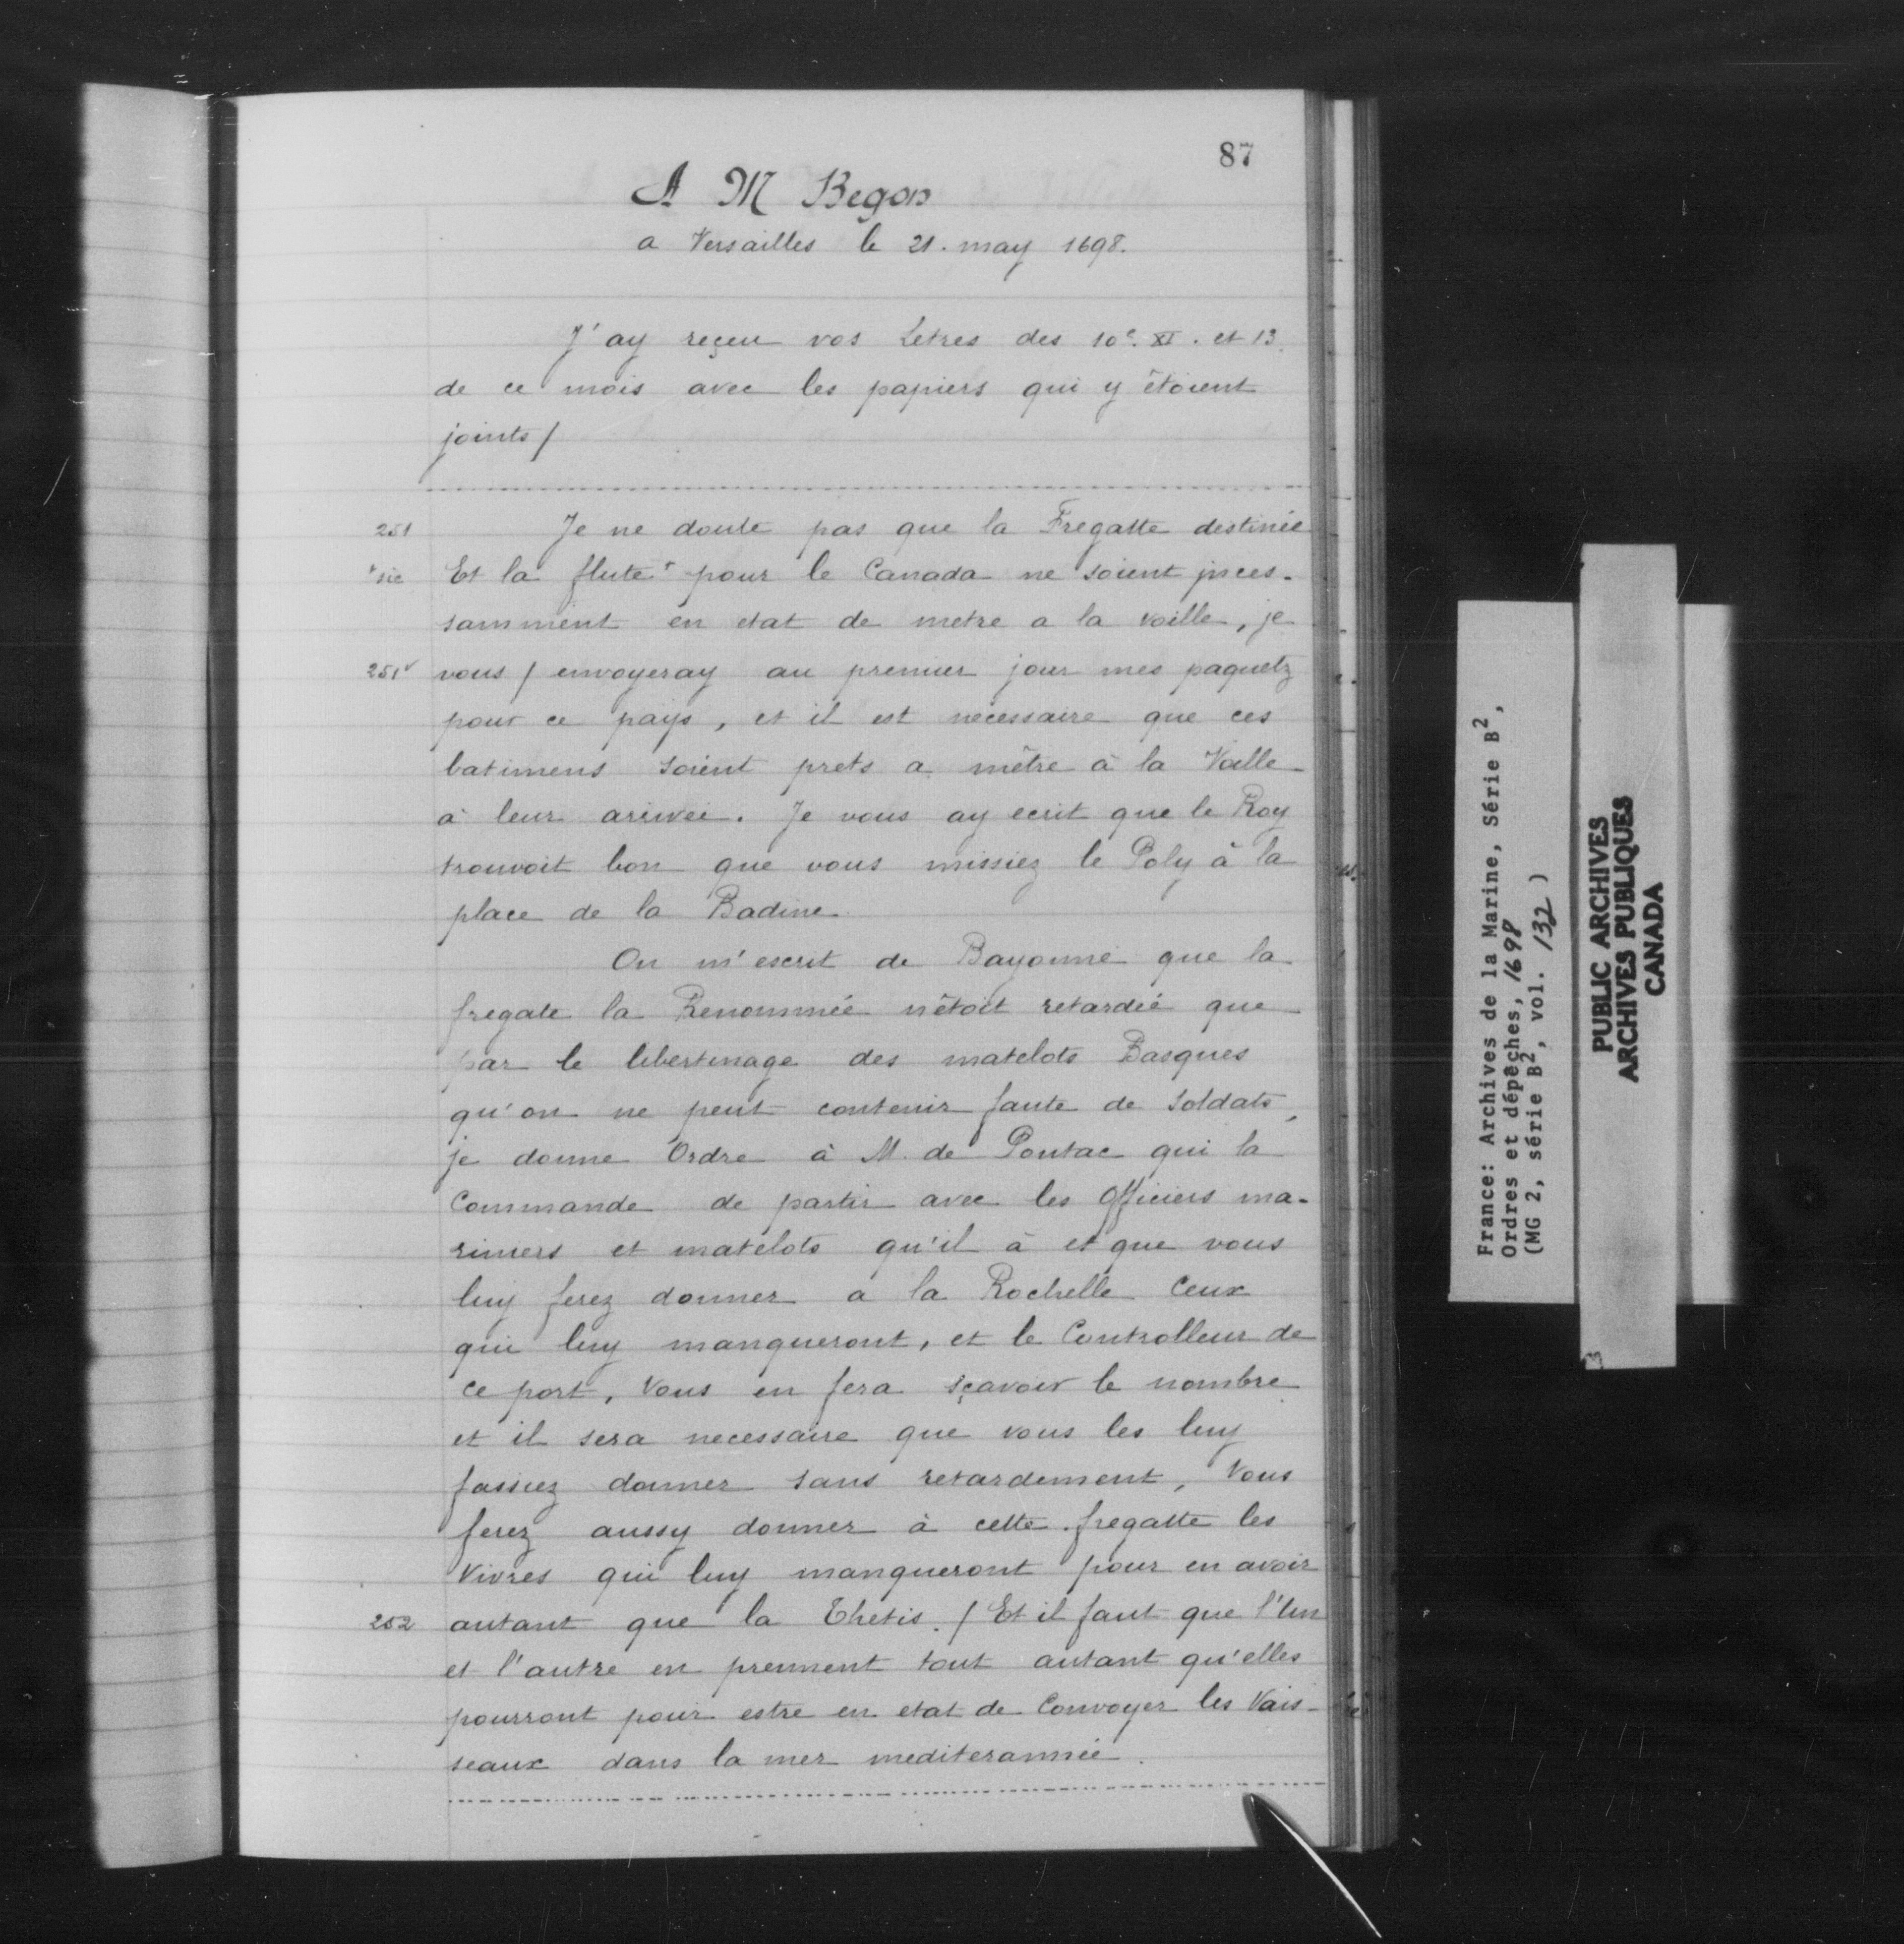 87
A M Begon
a Versailles le 21. may 1698.
J'ay reçeu vos Letres des 10e. XI. et 13.
de ce mois avec les papiers qui y êtoient
joints /
251 Je ne doute pas que la Fregatte destinée
+sic Et la flute+ pour le Canada ne soient jnces-
samment en etat de metre a la voille, je
251v vous / envoyeray au premier jour mes paquetz
pour ce pays, et il est necessaire que ces
batimens soient prets a mêtre à la Voille
à leur arivée. Je vous ay ecrit que le Roy
trouvoit bon que vous missiez le Poly à la
place de la Badine
On m'escrit de Bayonne que la
fregate la Renommée n'êtoit retardée que
par le libertinage des matelots Basques
qu'on ne peut contenir faute de Soldats,
je donne Ordre à M. de Pontac qui la
Commande de partir avec les Officiers ma-
riniers et matelots qu'il à et que vous
luy ferez donner a la Rochelle Ceux
qui luy manqueront, et le Controlleur de
ce port, Vous en fera sçavoir le nombre
et il sera necessaire que vous les luy
fassiez donner sans retardement, Vous
ferez aussy donner à cette fregatte les
Vivres qui luy manqueront pour en avoir
252 autant que la Thetis. / Et il faut que l'Un
et l'autre en prennent tout autant qu'elles
pourront pour estre en etat de Convoyer les Vais-
seaux dans la mer mediterannée.
France: Archives de la Marine, Série B2,
Ordres et dépêches, 1698
(MG 2, série B2, vol. 132)
PUBLIC ARCHIVES
ARCHIVES PUBLIQUES
CANADA